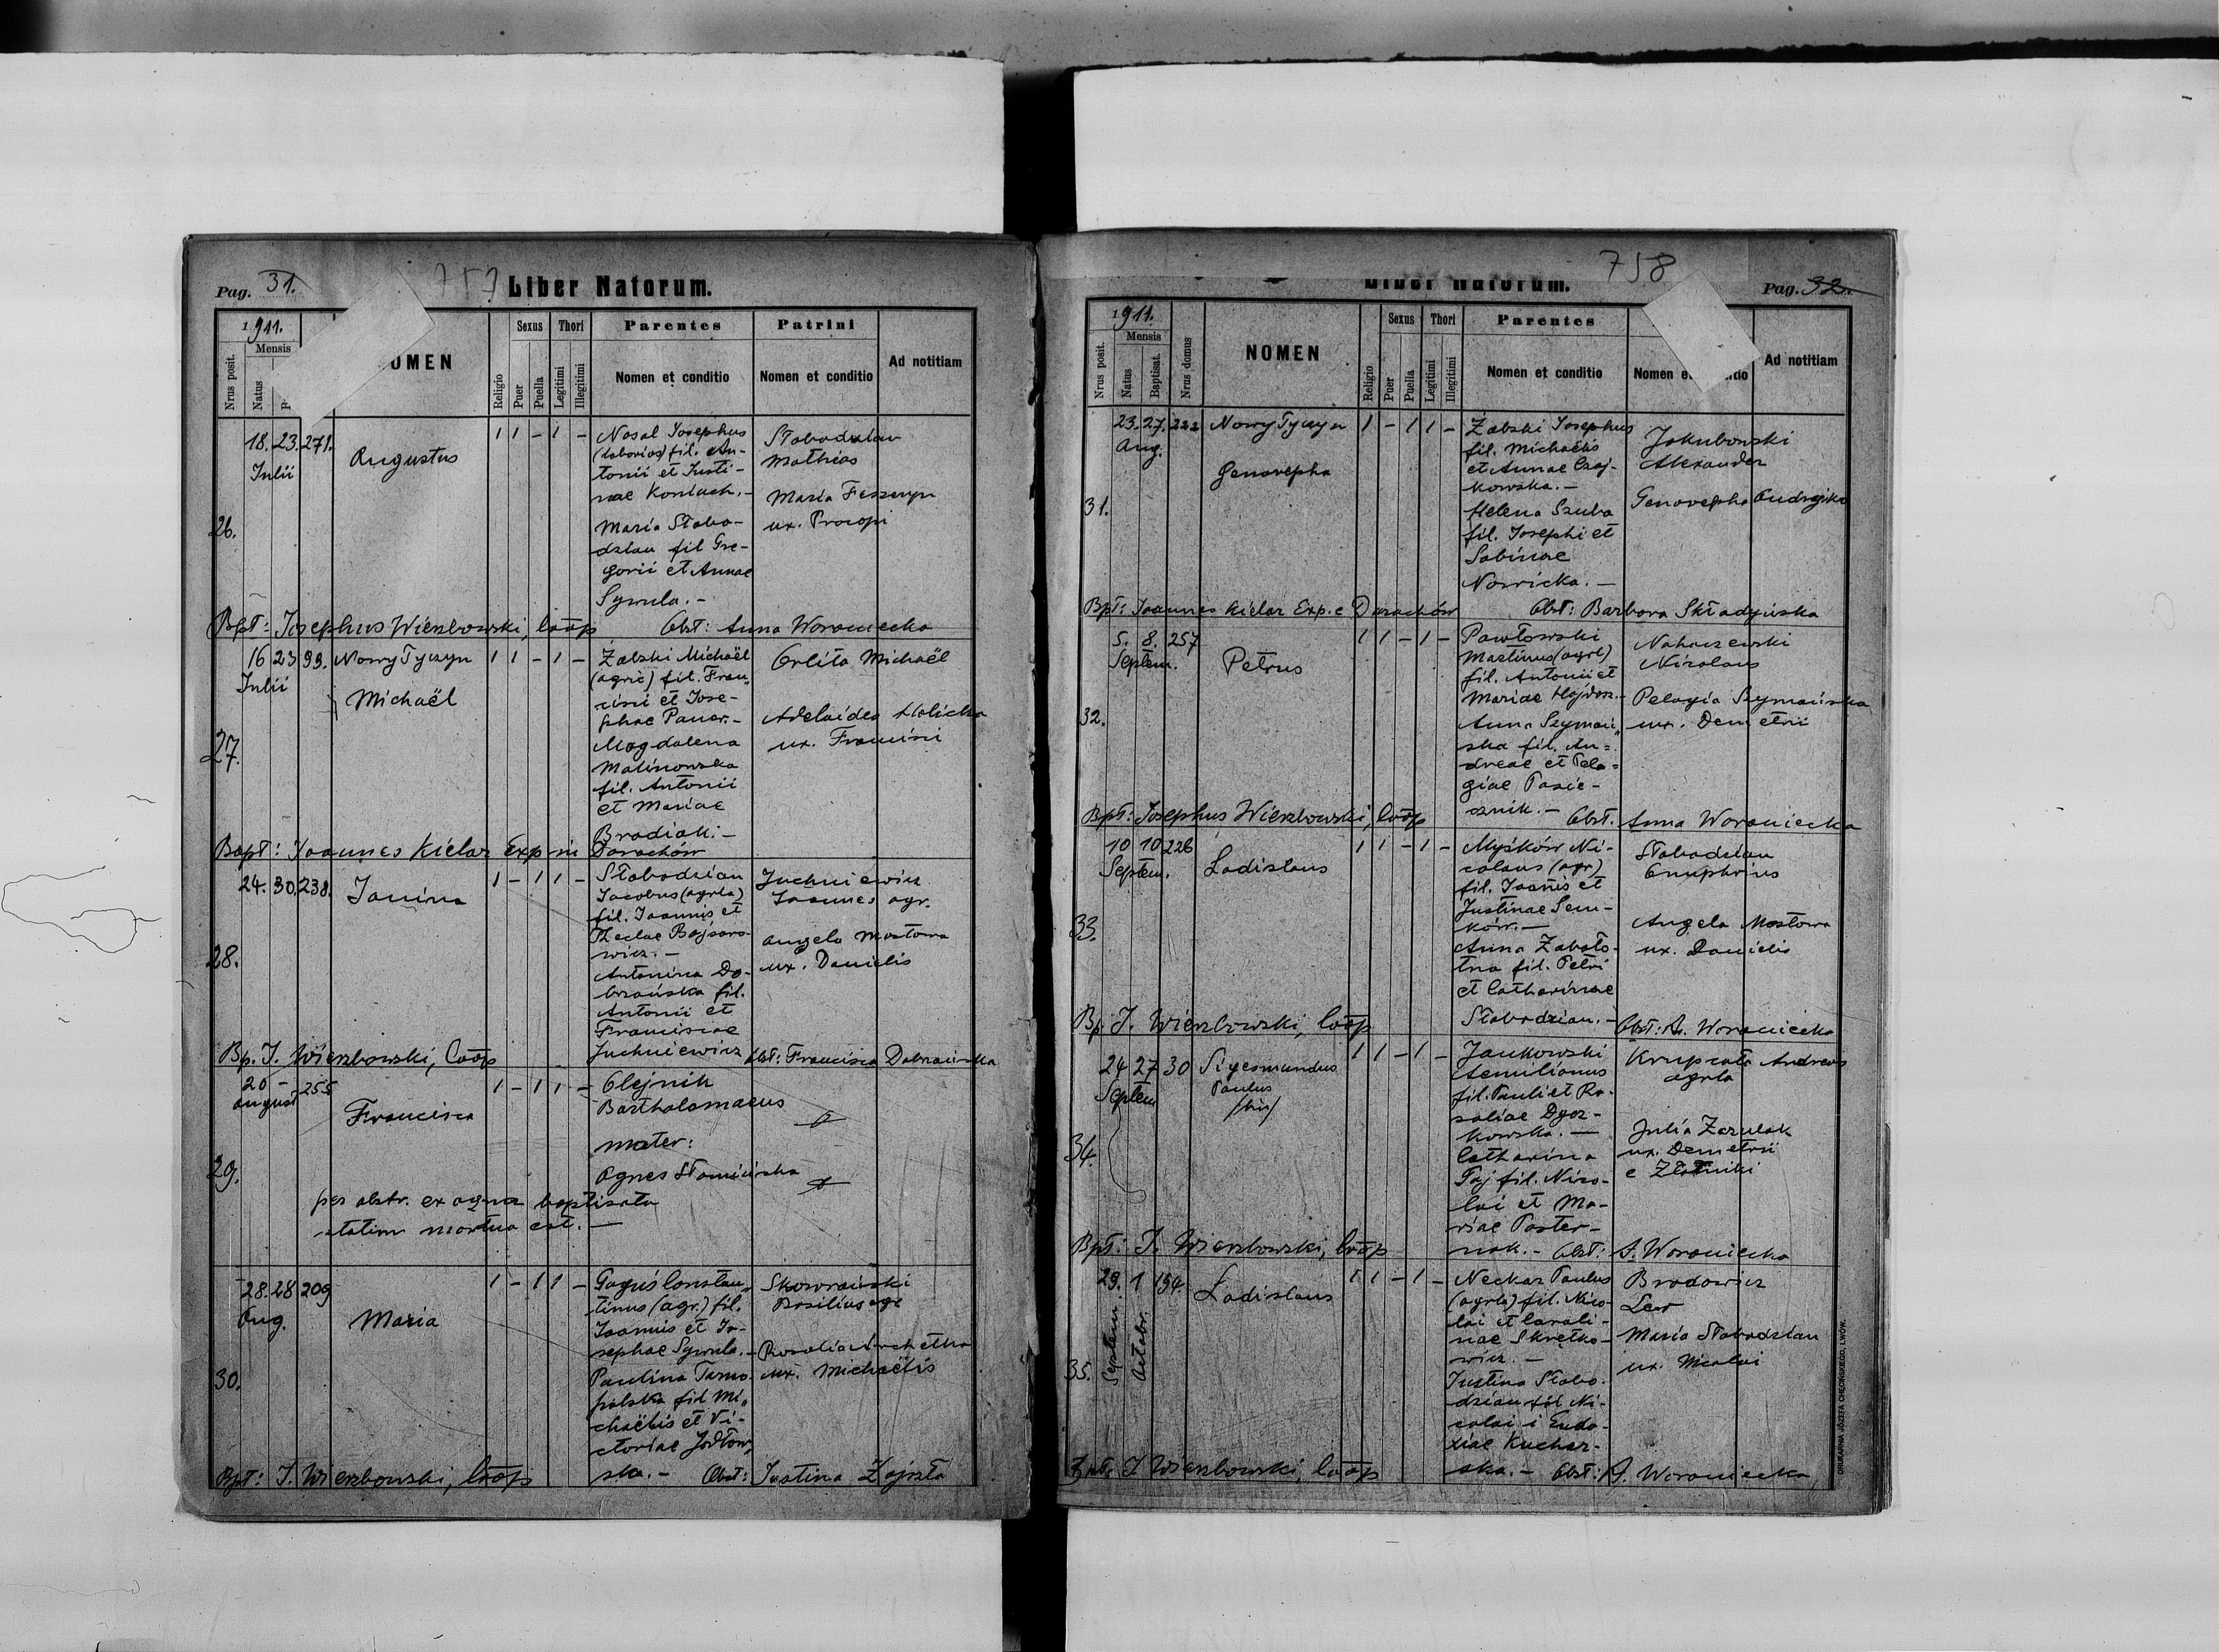 757
Pag. 31.
Liber Natorum.
1911.
Mensis
Nrus posit.
Natus
OMEN
Religio
Sexus
Puer
Puella
Thori
Legitimi
Illegitimi
Parentes
Nomen et conditio
Patrini
Nomen et conditio
Ad notitiam
26.
18. 23. 271.
Julii
Augustus
1 1 - 1 -
Nosal Josephus
(laborios) fil. An-
tonii et Justi-
nae Koniuch. -
Maria Słobo-
dzian fil Gre-
gorii et Annae
Syrula. -
Słobodzian
Mathias
Maria Feszczyn
ux. Procopi
Bpt: Josephus Wierzbowski, coop
Obst: Anna Woroniecka
27.
16 23 99. Nowy Tyczyn
Julii
Michaël
1 1 - 1 -
Żabski Michaël
(agric) fil. Fran„
cisci et Jose-
phae Panar. -
Magdalena
Malinowska
fil. Antonii
et Mariae
Brodiak. -
Orlita Michaël
Adelaidea Holicka
ux. Francisci
Bapt: Joannes Kielar Exp in Darachów
28.
24. 30. 238.
Janina
1 - 1 1 -
Słobodzian
Jacobus (agrla)
fil. Joannis et
Theclae Bajsaro-
wicz. -
Antonina Do-
brzańska fil.
Antonii et
Franciscae
Juchniewicz
Juchniewicz
Joannes agr.
Angela Mostowa
ux. Danielis
Bp. J. Wierzbowski, Coop
Obst: Francisca Dobrzańska
29.
20 - 255
August
Francisca
1 - 1 1 -
Olejnik
Bartholomaeus
mater:
Agnes Słomińska
per obstr. ex aqua baptisata
statim mortua est. -
30.
28. 28 209
Aug.
Maria
1 - 1 1 -
Gaguś Constan„
tinus (agr.) fil.
Joannis et Jo-
sephae Syrula. -
Paulina Tarno-
polska fil Mi„
chaëlis et Vi-
ctoriae Jodłow„
ska. -
Skowroński
Basilius agr
Rosalia Archetka
ux. Michaëlis
Bpt: J. Wierzbowski, coop
Obst: Justina Zajszła
758
Liber Natorum.
Pag. 32.
1911.
Mensis
Nrus posit.
Natus
Baptisat.
Nrus domus
NOMEN
Religio
Sexus
Puer
Puella
Thori
Legitimi
Illegitimi
Parentes
Nomen et conditio
Ad notitiam
31.
23. 27. 222 Nowy Tyczyn
Aug.
Genovepha
1 - 1 1 -
Żabski Josephus
fil. Michaëlis
et Annae Czaj-
kowska. -
Helena Szuba
fil. Josephi et
Sabinae
Nowicka. -
Jakubowski
Alexander
Genovepha Andrejko
Bpt: Joannes Kielar Exp. e Darachów
Obst: Barbara Składyńska
32.
5. 8. 257
Septem.
Petrus
1 1 - 1 -
Pawłowski
Martinus (agrl)
fil. Antonii et
Mariae Hajdasz. -
Anna Szymań„
ska fil. An=
dreae et Pela=
giae Pasie-
cznik. -
Nahaczewski
Nicolaus
Pelagia Szymańska
ux. Demetrii
Bpt: Josephus Wierzbowski, coop
Obst. Anna Woroniecka
33.
10 10 226
Septem.
Ladislaus
1 1 - 1 -
Myśków Ni-
colaus (agr.)
fil. Joañis et
Justinae Sem-
ków. -
Anna Zabało-
tna fil. Petri
et Catharinae
Słobodzian. -
Słobodzian
Onuphrius
Angela Mostowa
ux. Danielis
Bp. J. Wierzbowski, coop
Obst: A. Woroniecka
34.
24 27 30
Septem
Sigesmundus
Paulus
1 1 - 1 -
Jankowski
Aemilianus
fil. Pauli et Ro-
saliae Dycz-
kowska. -
Catharina
Gaj fil. Nico-
lai et Ma-
riae Paster-
nak. -
Krupcała Andreas
agrla
Julia Zazulak
ux. Demetrii
e Złotniki
Bpt: J. Wierzbowski, coop
Obst: A. Woroniecka
35.
29. 1 194.
Septem. Octobr.
Ladislaus
1 1 - 1 -
Neckar Paulus
(agrla) fil. Nico-
lai et Caroli-
nae Skrętko-
wicz. -
Justina Słobo-
dzian fil Ni-
colai i Eudo-
xiae Kuchar-
ska. -
Brodowicz
Leo
Maria Słobodzian
ux. Nicolai
Bpt. J. Wierzbowski, coop
Obst: A. Woroniecka
DRUKARNIA JÓZEFA CHĘCIŃSKIEGO, LWÓW.